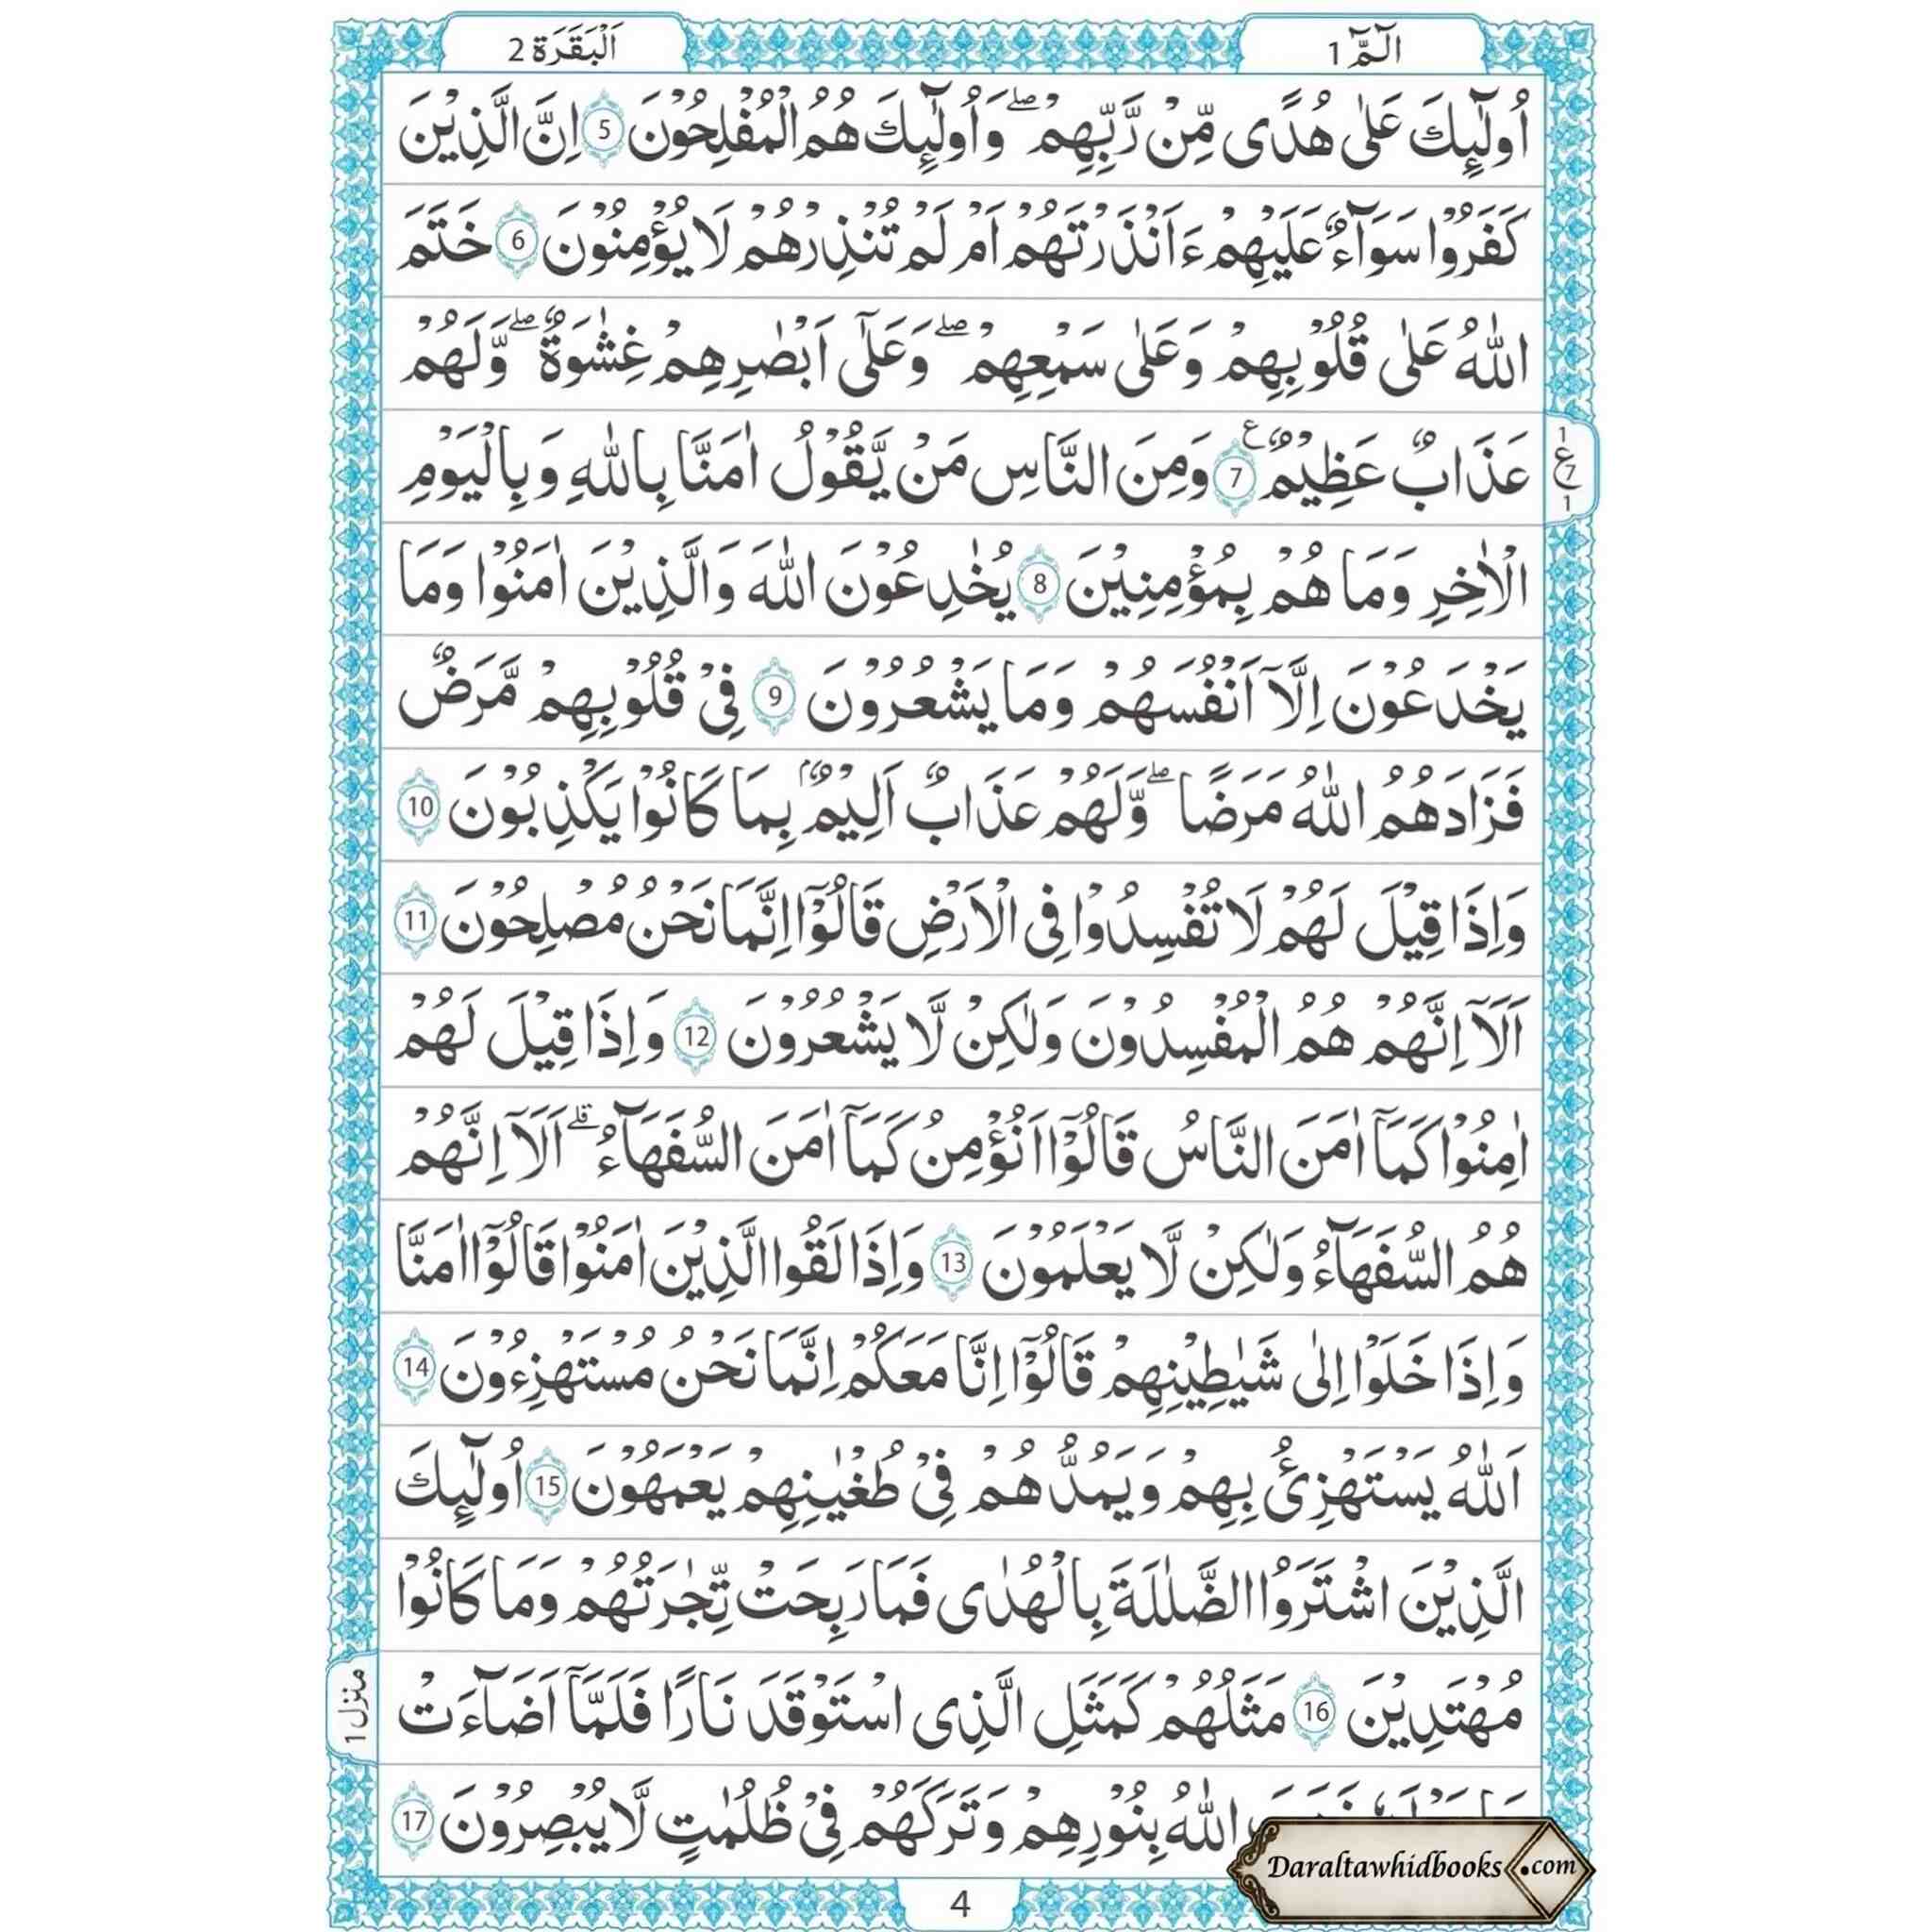 الٓمّٓ 1
اَلْبَقَرَة 2
اُولٰٓئِكَ عَلٰى هُدًى مِّنْ رَّبِّهِمْ ۖ وَاُولٰٓئِكَ هُمُ الْمُفْلِحُوْنَ 5 اِنَّ الَّذِيْنَ
كَفَرُوْا سَوَآءٌ عَلَيْهِمْ ءَاَنْذَرْتَهُمْ اَمْ لَمْ تُنْذِرْهُمْ لَا يُؤْمِنُوْنَ 6 خَتَمَ
اللّٰهُ عَلٰى قُلُوْبِهِمْ وَعَلٰى سَمْعِهِمْ ۖ وَعَلٰٓى اَبْصٰرِهِمْ غِشٰوَةٌ ۖ وَّلَهُمْ
عَذَابٌ عَظِيْمٌ ع 7 وَمِنَ النَّاسِ مَنْ يَّقُوْلُ اٰمَنَّا بِاللّٰهِ وَبِالْيَوْمِ
1 ع 7 1
الْاٰخِرِ وَمَا هُمْ بِمُؤْمِنِيْنَ 8 يُخٰدِعُوْنَ اللّٰهَ وَالَّذِيْنَ اٰمَنُوْا وَمَا
يَخْدَعُوْنَ اِلَّآ اَنْفُسَهُمْ وَمَا يَشْعُرُوْنَ 9 فِيْ قُلُوْبِهِمْ مَّرَضٌ
فَزَادَهُمُ اللّٰهُ مَرَضًا ۖ وَّلَهُمْ عَذَابٌ اَلِيْمٌۢ بِمَا كَانُوْا يَكْذِبُوْنَ 10
وَاِذَا قِيْلَ لَهُمْ لَا تُفْسِدُوْا فِى الْاَرْضِ قَالُوْٓا اِنَّمَا نَحْنُ مُصْلِحُوْنَ 11
اَلَآ اِنَّهُمْ هُمُ الْمُفْسِدُوْنَ وَلٰكِنْ لَّا يَشْعُرُوْنَ 12 وَاِذَا قِيْلَ لَهُمْ
اٰمِنُوْا كَمَآ اٰمَنَ النَّاسُ قَالُوْٓا اَنُؤْمِنُ كَمَآ اٰمَنَ السُّفَهَآءُ ۗ اَلَآ اِنَّهُمْ
هُمُ السُّفَهَآءُ وَلٰكِنْ لَّا يَعْلَمُوْنَ 13 وَاِذَا لَقُوا الَّذِيْنَ اٰمَنُوْا قَالُوْٓا اٰمَنَّا
وَاِذَا خَلَوْا اِلٰى شَيٰطِيْنِهِمْ قَالُوْٓا اِنَّا مَعَكُمْ اِنَّمَا نَحْنُ مُسْتَهْزِءُوْنَ 14
اَللّٰهُ يَسْتَهْزِئُ بِهِمْ وَيَمُدُّهُمْ فِيْ طُغْيٰنِهِمْ يَعْمَهُوْنَ 15 اُولٰٓئِكَ
الَّذِيْنَ اشْتَرَوُا الضَّلٰلَةَ بِالْهُدٰى فَمَا رَبِحَتْ تِّجٰرَتُهُمْ وَمَا كَانُوْا
مُهْتَدِيْنَ 16 مَثَلُهُمْ كَمَثَلِ الَّذِى اسْتَوْقَدَ نَارًا فَلَمَّآ اَضَآءَتْ
منزل 1
اللّٰهُ بِنُوْرِهِمْ وَتَرَكَهُمْ فِيْ ظُلُمٰتٍ لَّا يُبْصِرُوْنَ 17
Daraltawhidbooks.com
4